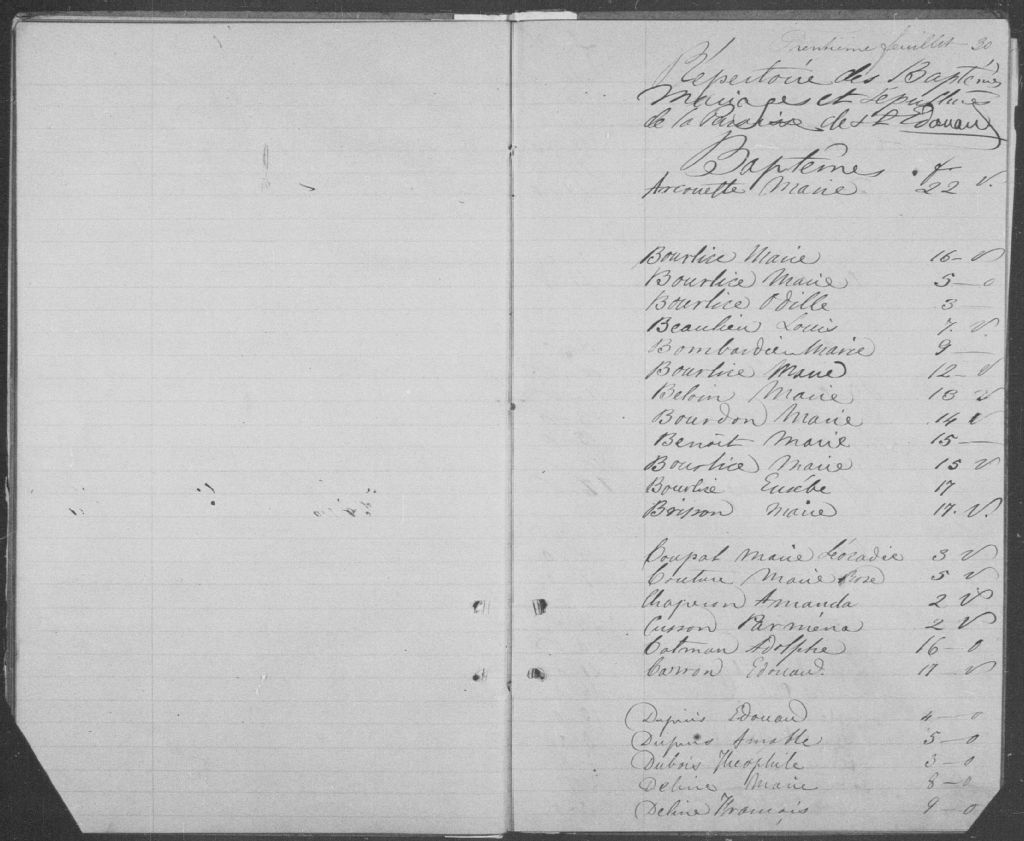 Trentième feuillet 30
Répertoire des Baptêmes
Mariages et Sépultures
de la Paroisse de St Edouard
Baptêmes . f
Arcouette Marie 22 v.
Bourlice Marie 16 - v
Bourlice Marie 5 - o
Bourlice Odille 3 —
Beaulieu Louis 7. v.
Bombardier Marie 9 —
Bourlice Marie 12 - v
Beloin Marie 13 v
Bourdon Marie 14 v
Benoît Marie 15 —
Bourlice Marie 15 v
Bourlice Eusèbe 17
Brisson Marie 17. v.
Coupal Marie Léocadie 3 v
Couture Marie Rose 5 v
Chaperon Amanda 2 v
Cusson Parména 2 v
Catman Adolphe 16 - o
Carron Edouard. 17 - v
Dupuis Edouard 4 - o
Dupuis Amable 5 - o
Dubois Théophile 3 - o
Deline Marie 8 - o
Deline François 9 - o